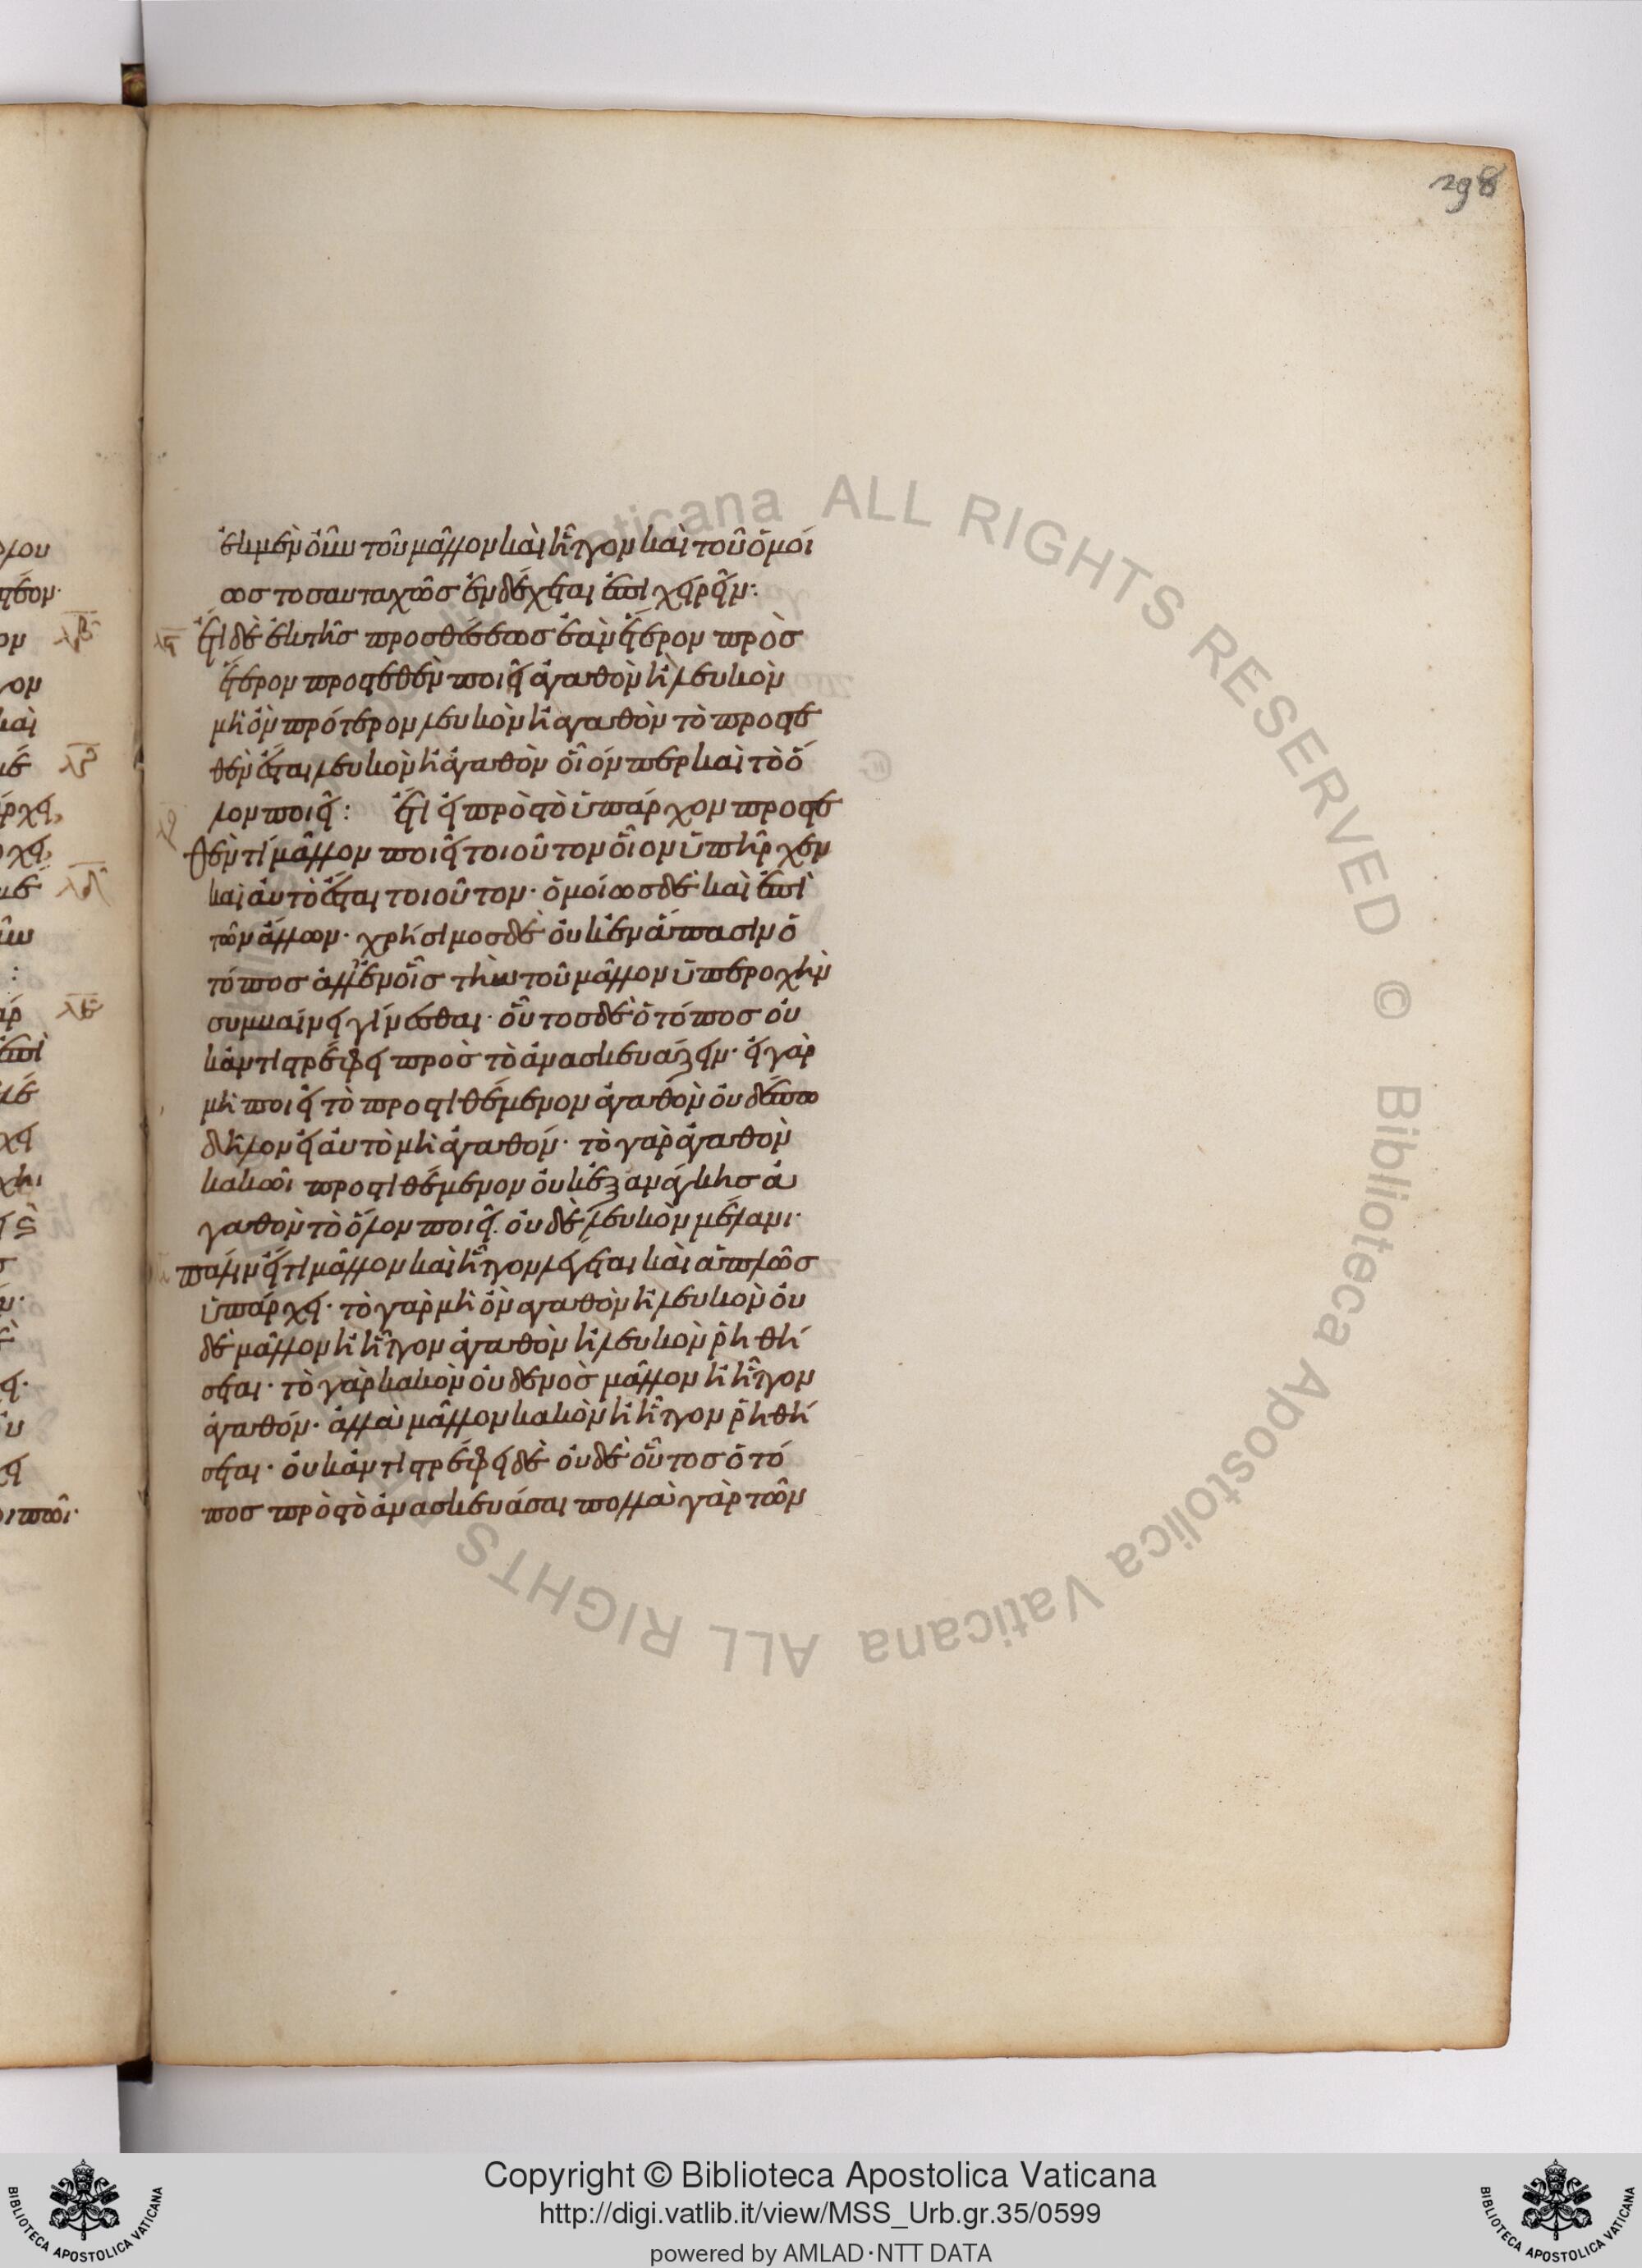 298
ἐκ μὲν οὖν τοῦ μᾶλλον καὶ ἧττον καὶ τοῦ ὁμοί
ως τοσαυταχῶς ἐνδέχεται ἐπιχειρεῖν:
λς ἔτι δὲ ἐκ τῆς προσθέσεως ἐὰν ἕτερον πρὸς
ἕτερον προστεθὲν ποιεῖ ἀγαθὸν ἢ λευκὸν
μὴ ὂν πρότερον λευκὸν ἢ ἀγαθὸν τὸ προστε
θὲν ἔσται λευκὸν ἢ ἀγαθὸν οἷόν περ καὶ τὸ ὅ
λον ποιεῖ: ἔτι εἰ πρὸς τὸ ὑπάρχον προστε
θέν τι μᾶλλον ποιεῖ τοιοῦτον οἷον ὑπῆρχεν
καὶ αὐτὸ ἔσται τοιοῦτον· ὁμοίως δὲ καὶ ἐπὶ
τῶν ἄλλων· χρήσιμος δὲ οὐκ ἐν ἅπασιν ὁ
τόπος ἀλλ' ἐν οἷς τὴν τοῦ μᾶλλον ὑπεροχὴν
συμβαίνει γίνεσθαι· οὗτος δὲ ὁ τόπος οὐ
κ ἀντιστρέφει πρὸς τὸ ἀνασκευάζειν· εἰ γὰρ
μὴ ποιεῖ τὸ προστιθέμενον ἀγαθὸν οὐδέπω
δῆλον εἰ αὐτὸ μὴ ἀγαθόν· τὸ γὰρ ἀγαθὸν
κακῶι προστιθέμενον οὐκ ἐξ ἀνάγκης ἀ
γαθὸν τὸ ὅλον ποιεῖ. οὐδὲ λευκὸν μέλανι·
πάλιν εἴ τι μᾶλλον καὶ ἧττον λέγεται καὶ ἁπλῶς
ὑπάρχει· τὸ γὰρ μὴ ὂν ἀγαθὸν ἢ λευκὸν οὐ
δὲ μᾶλλον ἢ ἧττον ἀγαθὸν ἢ λευκὸν ῥηθή
σεται· τὸ γὰρ κακὸν οὐδενὸς μᾶλλον ἢ ἧττον
ἀγαθόν· ἀλλὰ μᾶλλον κακὸν ἢ ἧττον ῥηθή
σεται· οὐκ ἀντιστρέφει δὲ οὐδὲ οὗτος ὁ τό
πος πρὸς τὸ ἀνασκευάσαι πολλὰ γὰρ τῶν
Copyright © Biblioteca Apostolica Vaticana
http://digi.vatlib.it/view/MSS_Urb.gr.35/0599
powered by AMLAD·NTT DATA
BIBLIOTECA APOSTOLICA VATICANA
BIBLIOTECA APOSTOLICA VATICANA